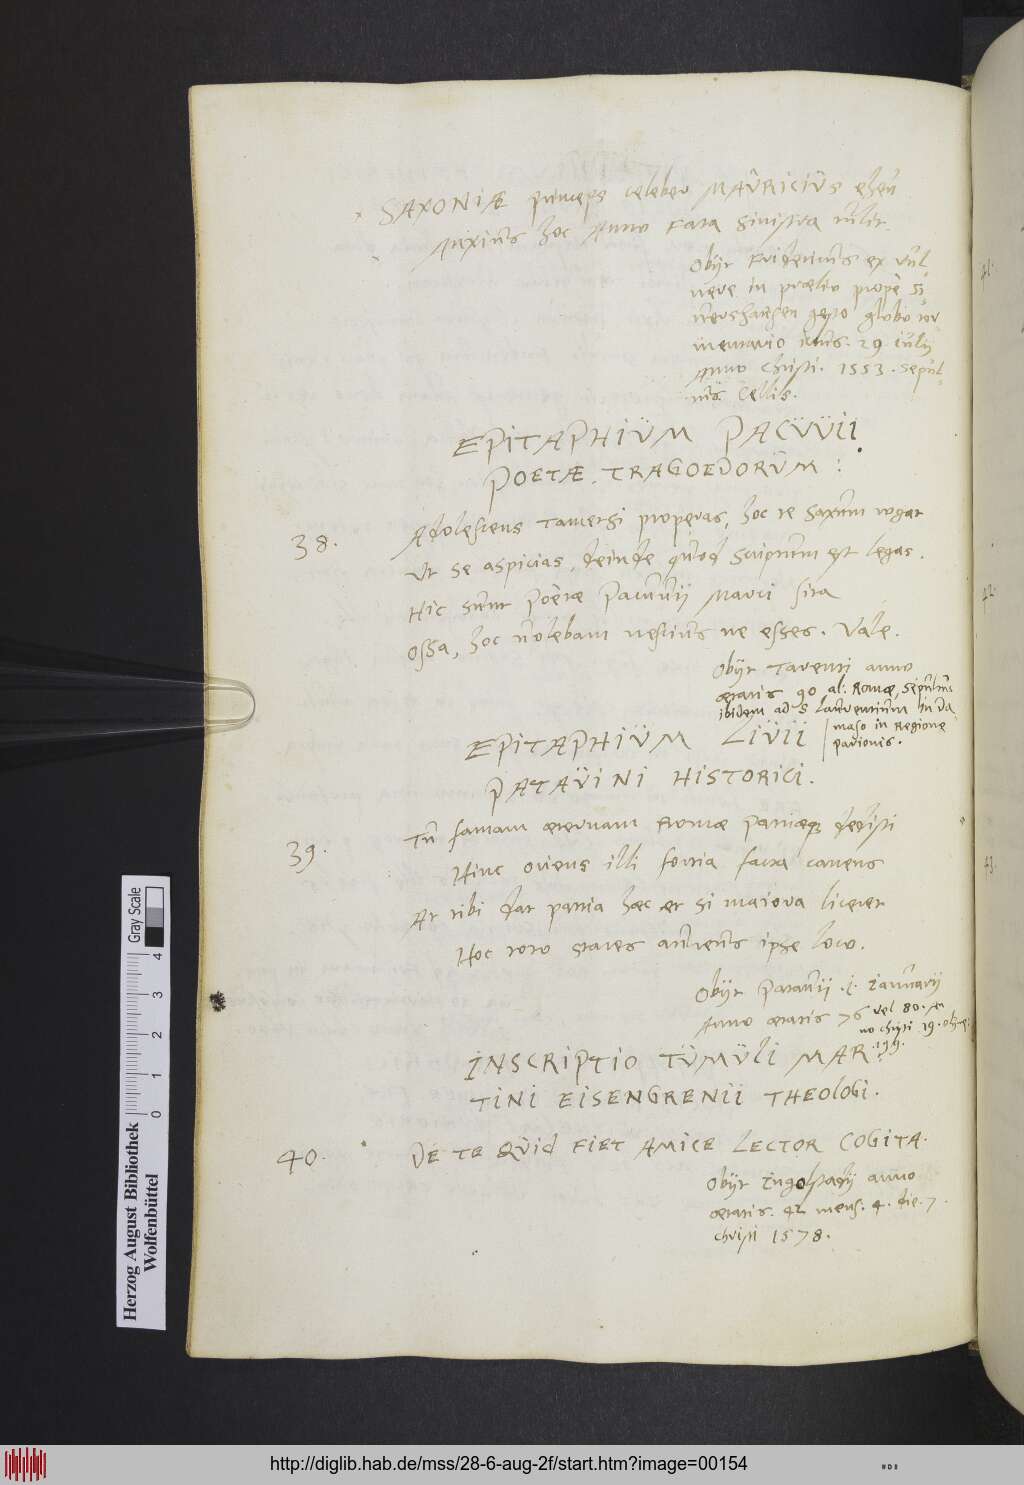 SAXONIÆ princeps celeber MAŬRICIŬS eheŭ
Anxiŭs hoc Anno Fata Sinistra tŭlit.
Obijt Fridericŭs ex vŭl
nere in prælio prope Si
vershaŭsen gesto globo tor
mentario ictŭs. 29 iŭlij
Anno Christi. 1553. sepŭl-
tŭs Cellis.
EPITAPHIŬM PACŬŬII
POETÆ TRAGOEDORŬM:
38. Adolescens tametsi properas, hoc te saxŭm rogat
Ut se aspicias, deinde qŭod scriptŭm est legas.
Hic sŭnt poëtæ Pacŭŭij Marci sita
ossa, hoc ŭolebam nesciŭs ne esses. Vale.
Obijt Tarenti anno
ætatis 90 al: Romæ, sepŭltŭs
ibidem ad S Laŭrentiŭm in Da
maso in Regione
parionis.
EPITAPHIŬM LIŬII
PATAŬINI HISTORICI.
39. Tŭ famam æternam Romæ patriæq; dedisti
Hinc oriens illi fortia facta canens
At tibi dat patria hæc et si maiora liceret
Hoc toto stares aŭreŭs ipse loco.
Obijt Pataŭij .j. Ianŭarij
Anno ætatis 76 vel 80. An
no christi 19. oly-e:
199.
INSCRIPTIO TŬMŬLI MAR
TINI EISENGRENII THEOLOGI.
40. DE TE QŬID FIET AMICE LECTOR COGITA.
Obijt Ingolstadij anno
ætatis. 42 mens. 4. die. 7.
christi 1578.
41.
42.
43.
Herzog August Bibliothek
Wolfenbüttel
Gray Scale
0 1 2 3 4
http://diglib.hab.de/mss/28-6-aug-2f/start.htm?image=00154